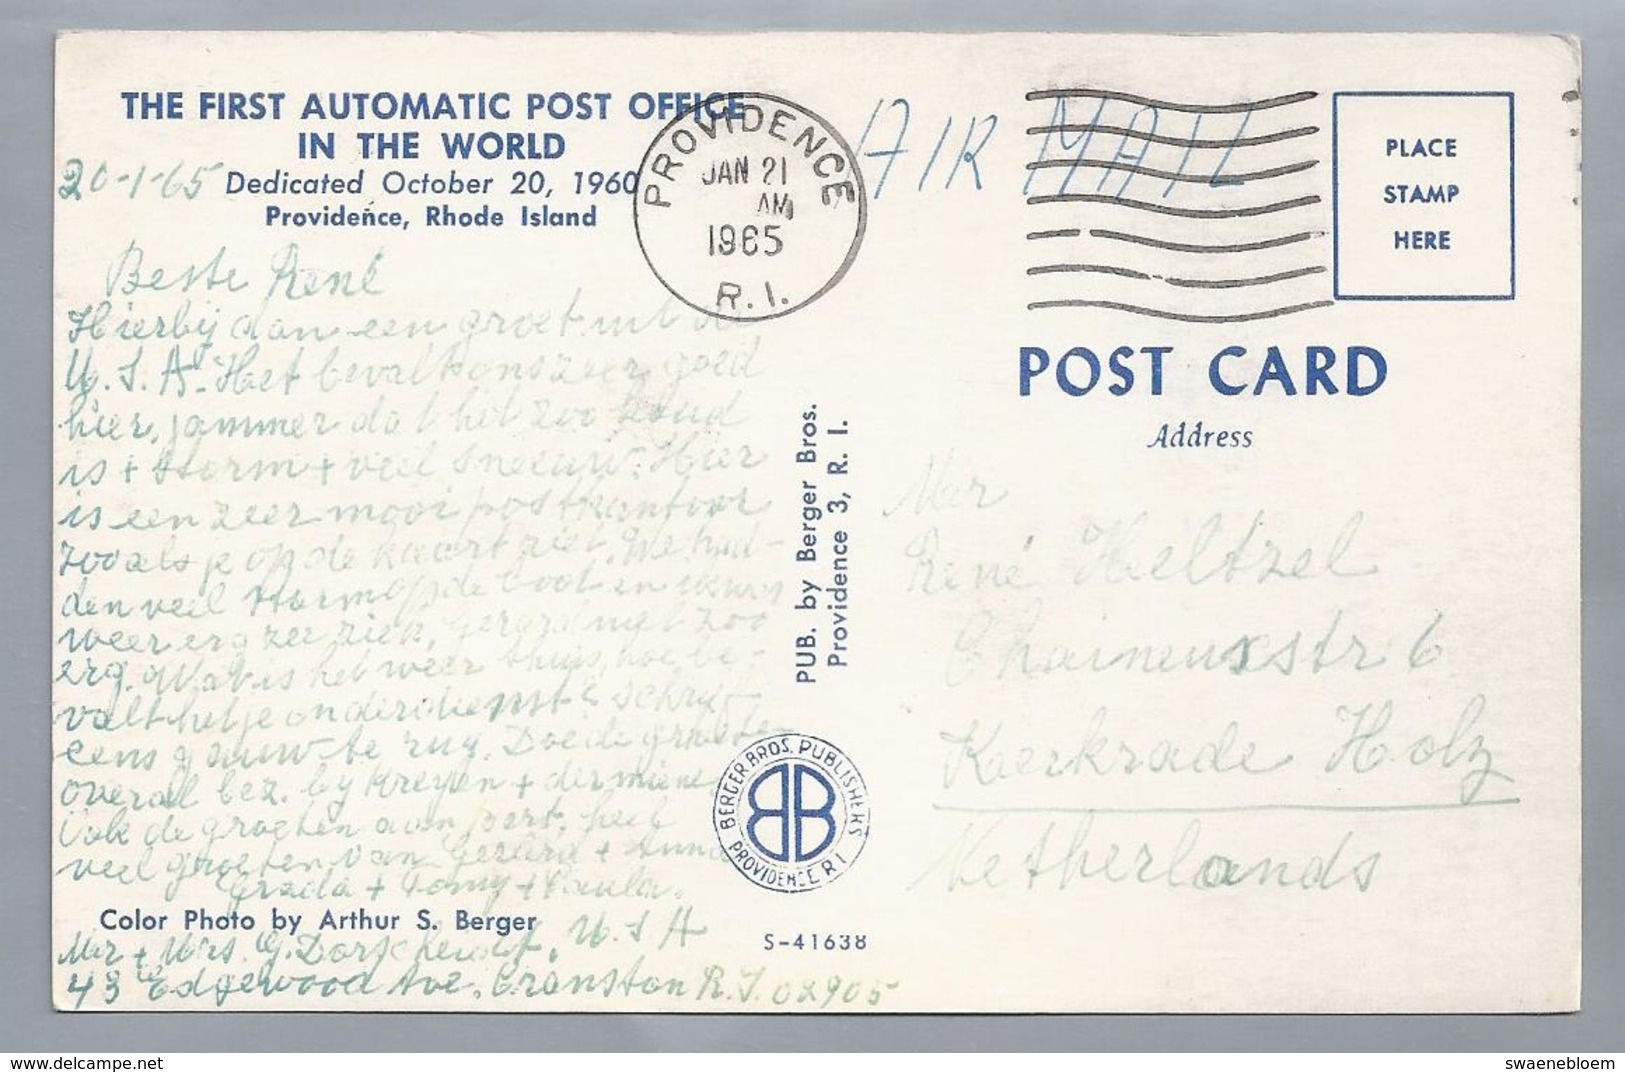 THE FIRST AUTOMATIC POST OFFICE
IN THE WORLD
Dedicated October 20, 1960
Providence, Rhode Island
20-1-65
Beste René
Hierbij dan een groet uit de
U.S.A. Het bevalt ons zeer goed
hier, jammer dat het zoo koud
is + storm + veel sneeuw. Hier
is een zeer mooi postkantoor
zooals je op de kaart ziet. We had-
den veel storm op de boot en ik was
weer erg zeeziek, Gerard niet zoo
erg. Wat is het weer thuis, hoe be-
valt het je onderdienst? Schrijf
eens gauw terug. Doe de groeten
overal bez. by Kreyen + der miene
Ook de groeten aan heel
veel groeten van Gerard + Anna
Grada + Tomy + Paula.
Color Photo by Arthur S. Berger
Mr + Mrs. G. Dorscheidt. U.S A
43 Edgewood Ave. Cranston R.I. 02905
PUB. by Berger Bros.
Providence 3, R. I.
BERGER BROS. PUBLISHERS
PROVIDENCE R I
BB
S-41638
PROVIDENCE
JAN 21
AM
1965
R. I.
AIR MAIL
PLACE
STAMP
HERE
POST CARD
Address
Mer
René Heltzel
Chaineuxstr 6
Kerkrade Holz
Netherlands
delcampe.net
swaenebloem